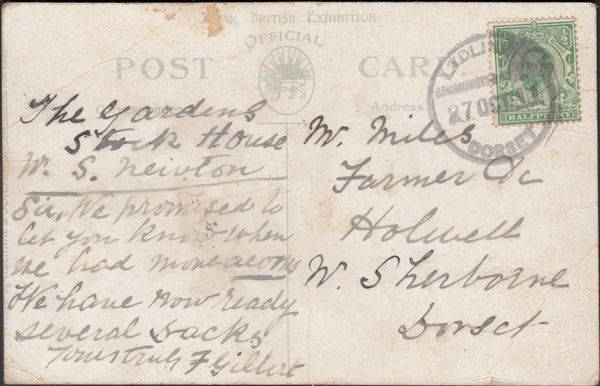 Japan British Exhibition
OFFICIAL
POST CARD
Address
The Gardens
Stock House
W. S. Newton
Sir, We promised to
let you know when
we had more acorns
We have now ready
several sacks
Yours truly F Gillert
Mr. Miles
Farmer &c
Holwell
Nr. Sherborne
Dorset
LYDLIN
27 OC 11
DORSET
HALFPENNY